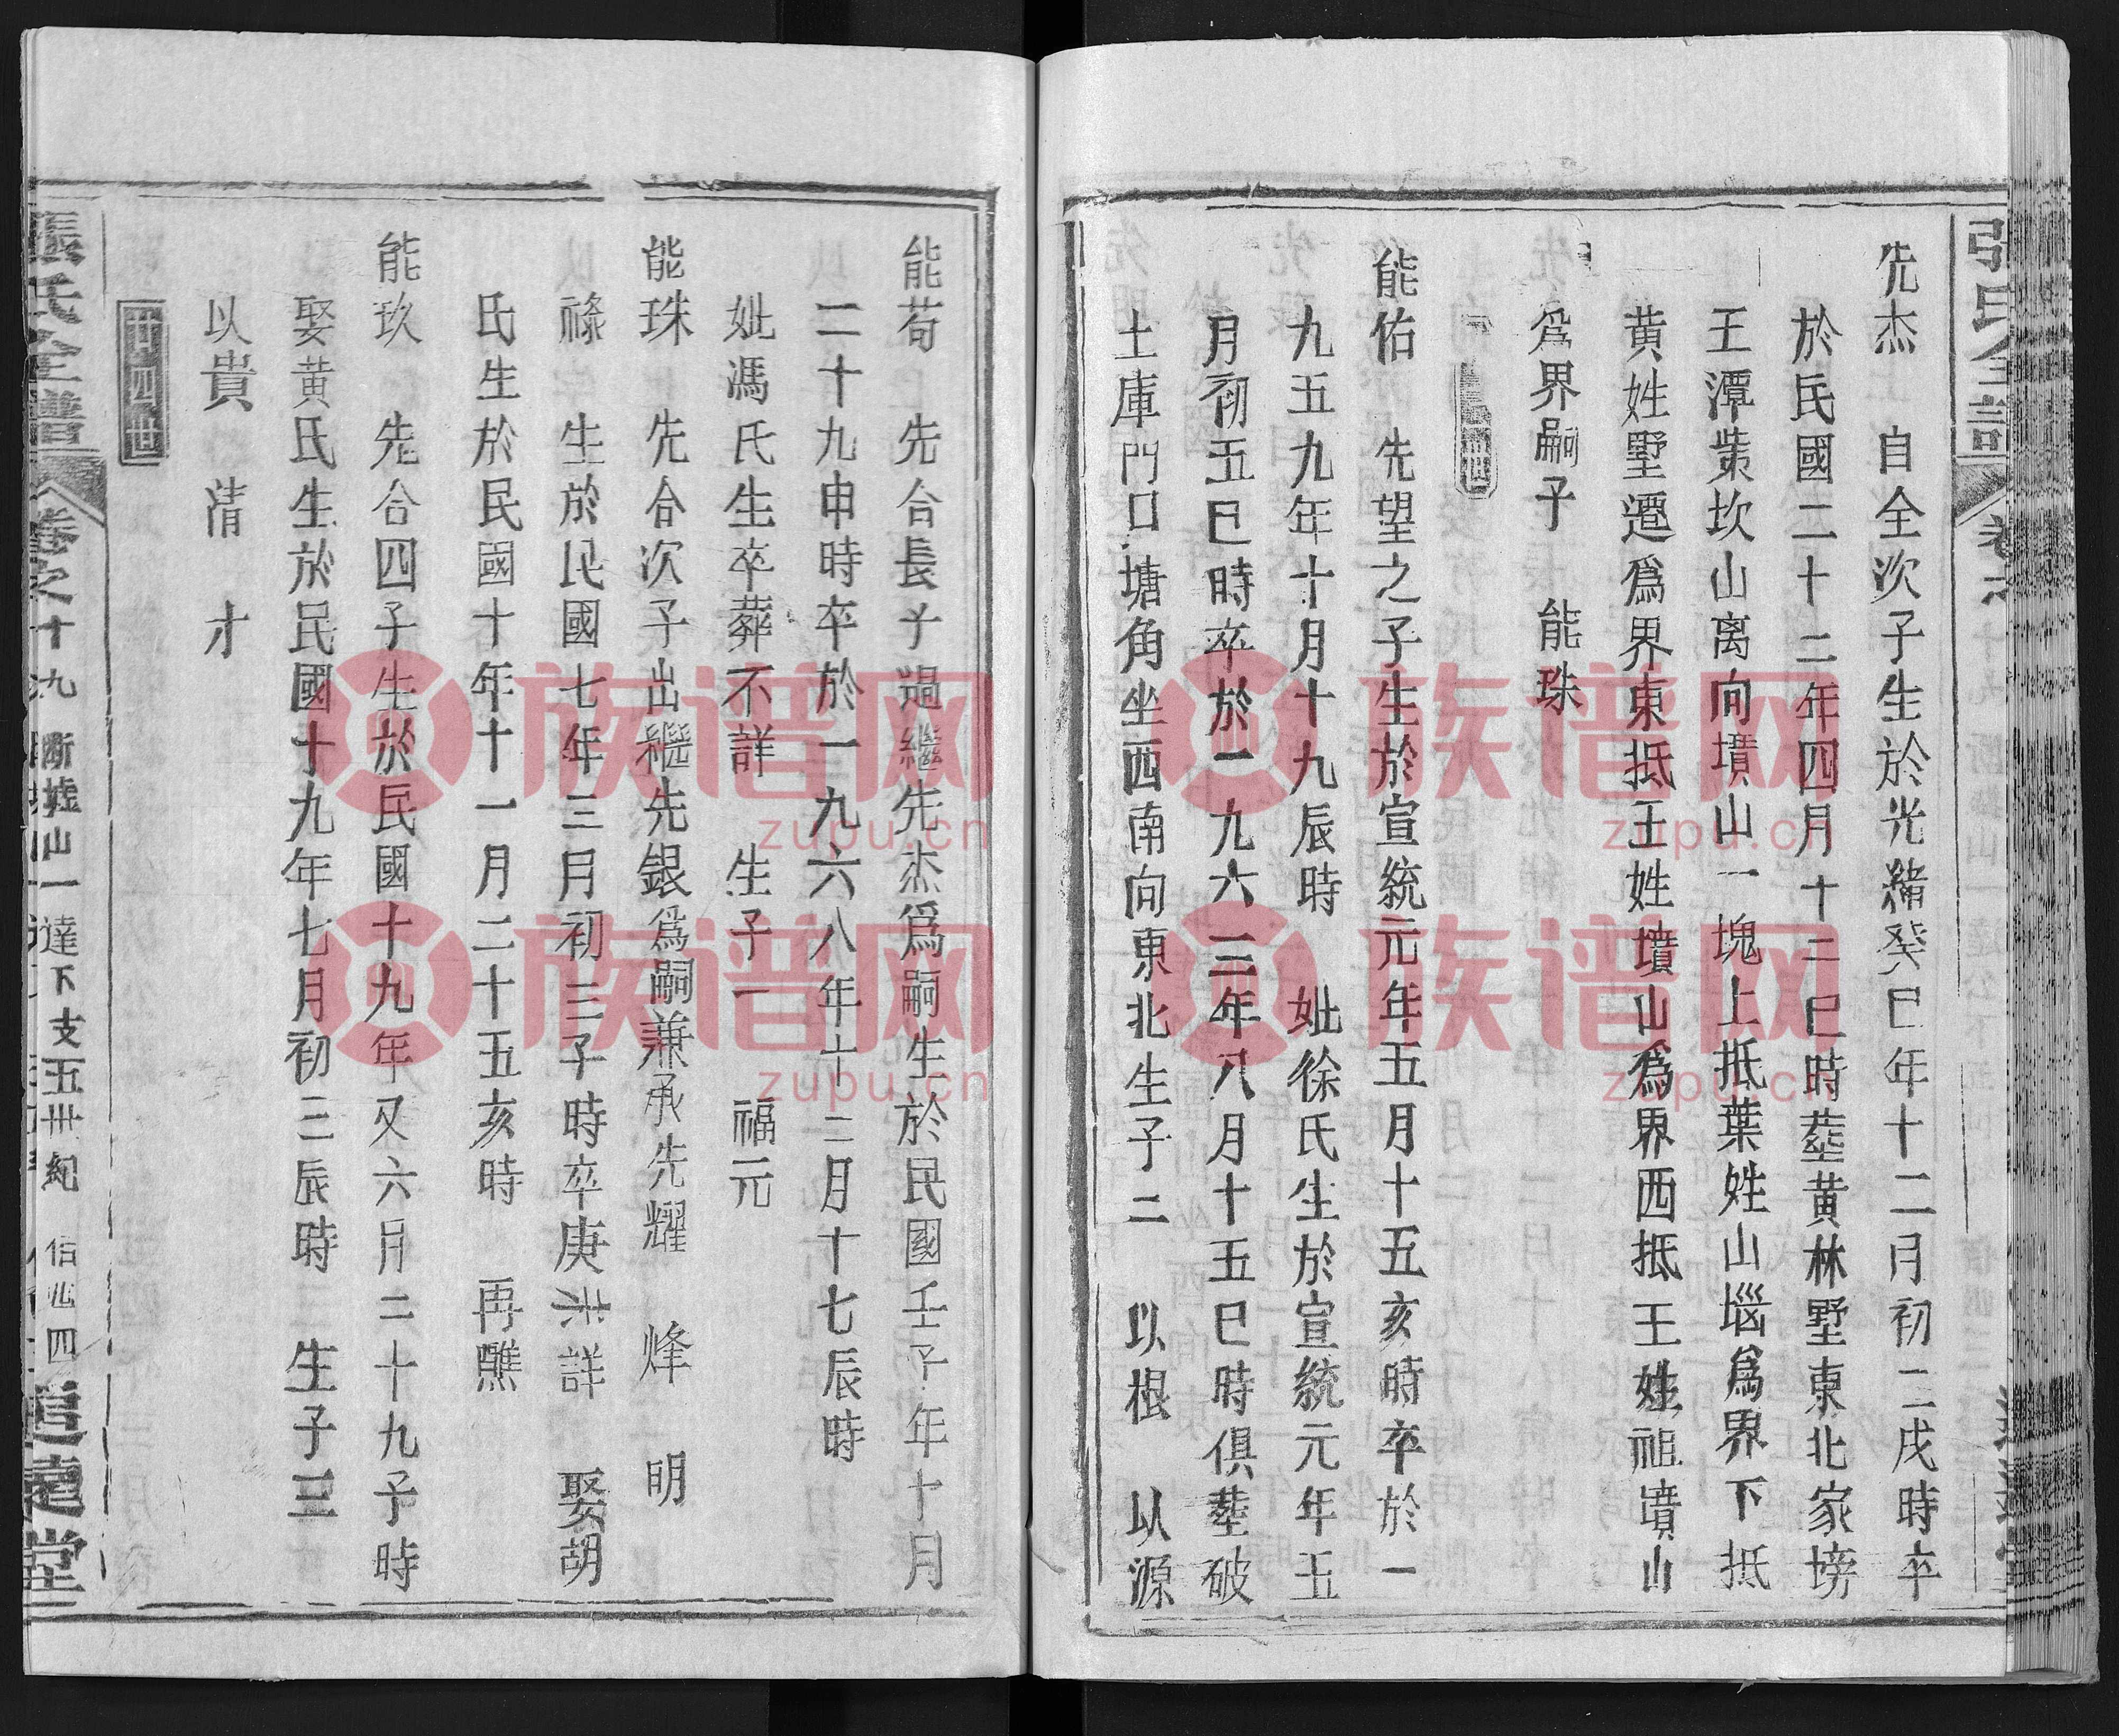 先杰 自全次子生於光緒癸巳年十二月初二戌時卒
於民國二十二年四月十二巳時塟黄林墅東北家塝
王潭柴坎山离向墳山一塊上抵葉姓山堖爲界下抵
黄姓墅遷爲界東抵王姓墳山爲界西抵王姓祖墳山
爲界嗣子 能珠
能佑 先望之子生於宣統元年五月十五亥時卒於一
九五九年十月十九辰時 妣徐氏生於宣統元年五
月初五巳時卒於一九六三年八月十五巳時俱塟破
土庫門口塘角坐西南向東北生子二 以根 以源
能苟 先合長子過繼先杰爲嗣生於民國壬子年十月
二十九申時卒於一九六八年十二月十七辰時
妣馮氏生卒葬不詳 生子一 福元
能珠 先合次子出繼先銀爲嗣兼承先耀 烽 明
祿 生於民國七年三月初三子時卒庚未詳 娶胡
氏生於民國十年十一月二十五亥時 再醮
能玖 先合四子生於民國十九年又六月二十九子時
娶黄氏生於民國十九年七月初三辰時 生子三
以貴 清 才
四十四世
張氏全譜 卷之十九 斷墟山一達下支五卅紀 信兆四 追遠堂
族谱网
zupu.cn
族谱网
zupu.cn
族谱网
zupu.cn
族谱网
zupu.cn